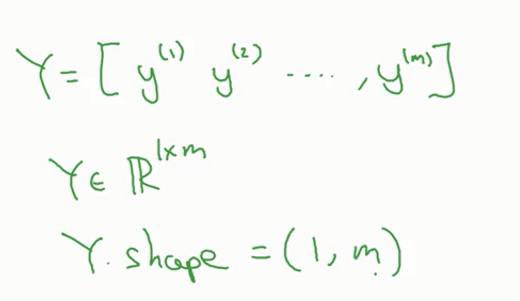 Y = [ y⁽¹⁾ y⁽²⁾ ...., y⁽ᵐ⁾ ]
Y ∈ ℝ¹ˣᵐ
Y.shape = (1, m)